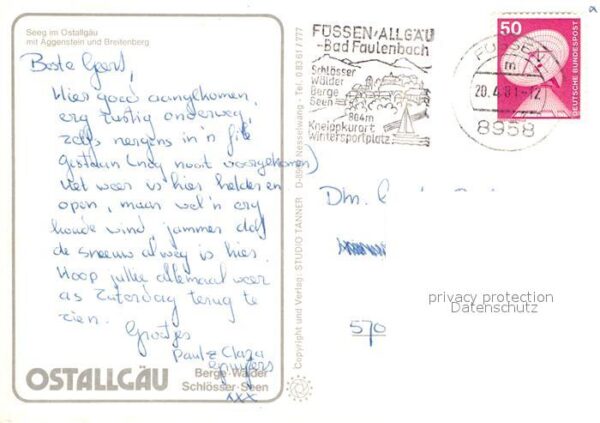 Seeg im Ostallgäu
mit Aggenstein und Breitenberg
Beste Geert,
Hier goed aangekomen,
erg rustig onderweg,
zelfs nergens in'n file
gestaan (nog nooit voorgekomen)
Het weer is hier helder en
open, maar wel'n erg
koude wind, jammer dat
de sneeuw al weg is hier.
Hoop jullie allemaal weer
as Zaterdag terug te
zien.
Groetjes
Paul & Clara
xxx
OSTALLGÄU
Berge·Wälder
Schlösser·Seen
Copyright und Verlag: STUDIO TANNER D-8964 Nesselwang - Tel. 08361/777
FÜSSEN·ALLGÄU
-Bad Faulenbach
Schlösser
Wälder
Berge
Seen
804m
Kneippkurort
Wintersportplatz
FÜSSEN
20.4.81-12
8958
50
DEUTSCHE BUNDESPOST
Dhr.
570
privacy protection
Datenschutz